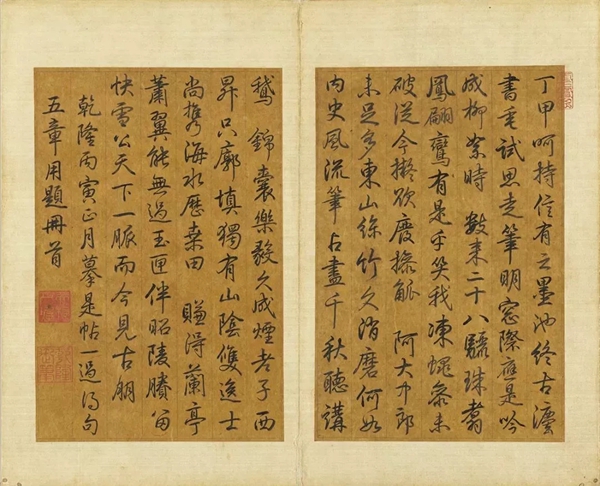 丁甲呵持信有之墨池終古灋
書垂試思走筆明窓際應是吟
成柳絮時 數來二十八驪珠翥
鳳翩鸞有是乎笑我凍蠅參未
破從今擬欲廢操觚 阿大中郎
未足多東山絲竹久消磨何如
內史風流筆占盡千秋聽講
鵝 錦囊樂毅久成煙老子西
昇只廓填獨有山陰雙逸士
尚攜海水歷桑田 賺得蘭亭
蕭翼能無過玉匣伴昭陵賸留
快雪公天下一脈而今見古朋
乾隆丙寅正月摹是帖一過得句
五章用題冊首